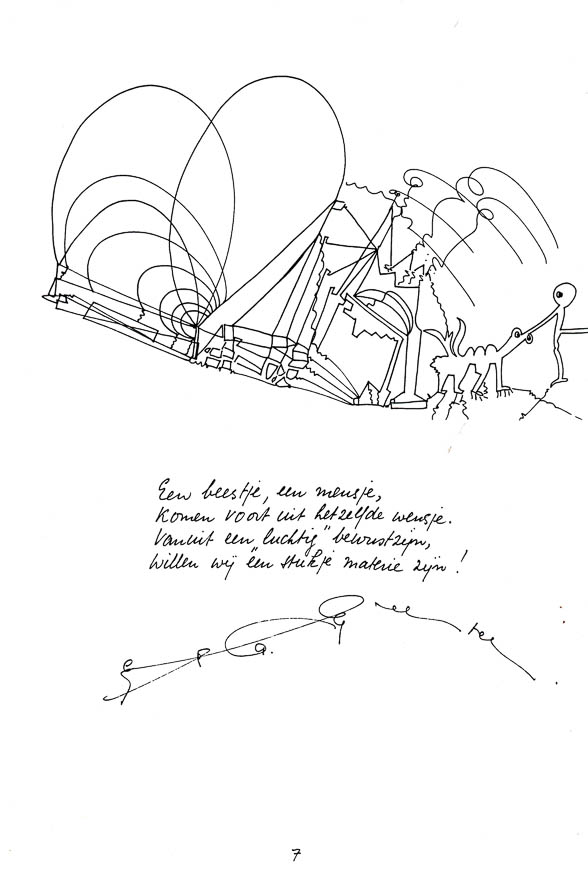 Een beestje, een mensje,
komen voort uit hetzelfde wensje.
Vanuit een "luchtig" bewustzijn,
willen wij een stukje materie zijn!
7